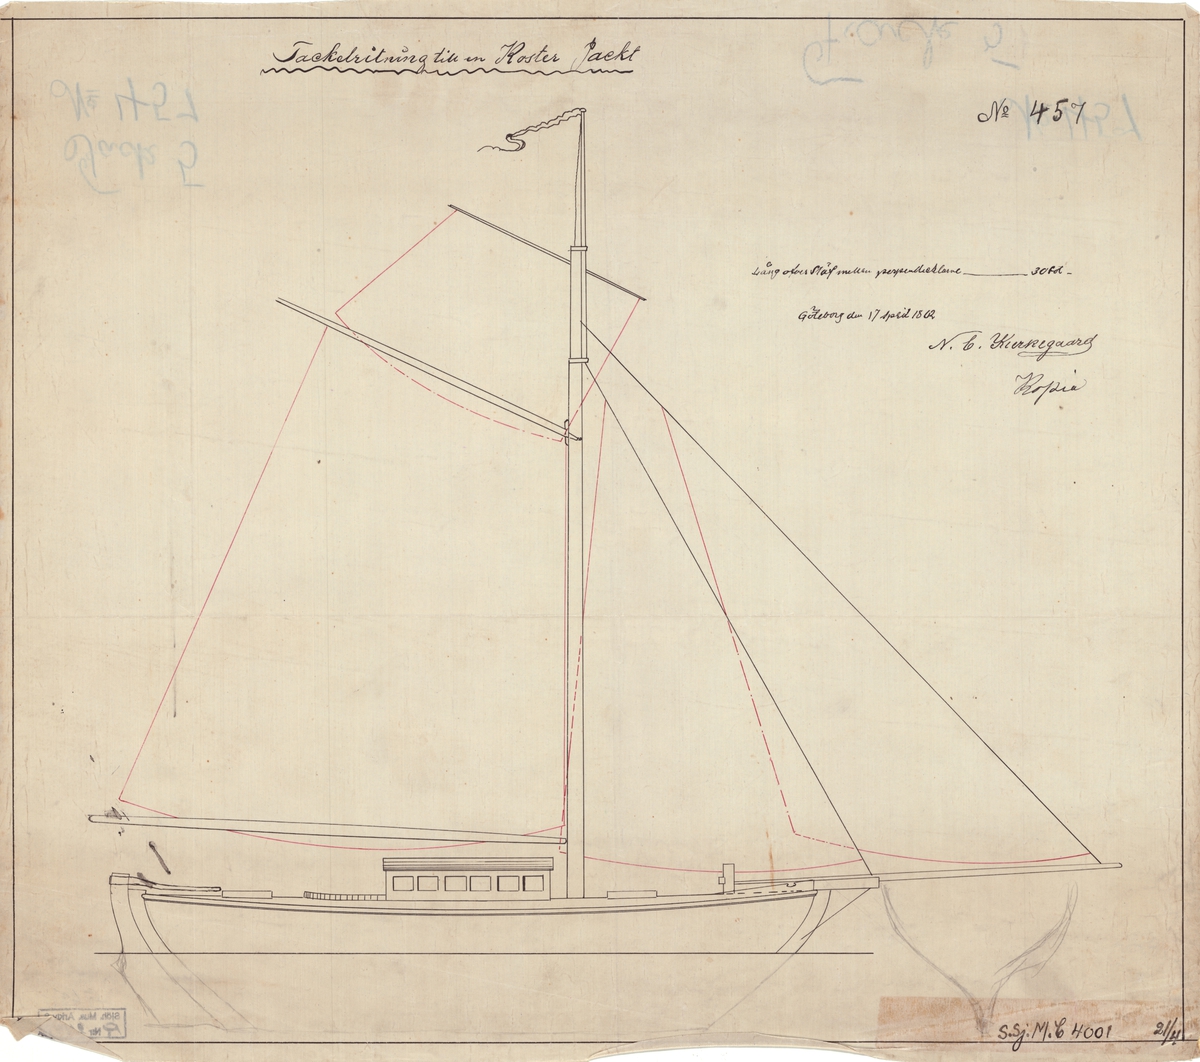 Tackelritning till en Koster Jackt
No 457
Läng öfver Stäf mellan perpendiklarne 30 fot
Göteborg den 17 April 1862
N. C. Kierkegaard
Kopia
No 457
Fack 5
S.Sj.M. C 4001
21/4